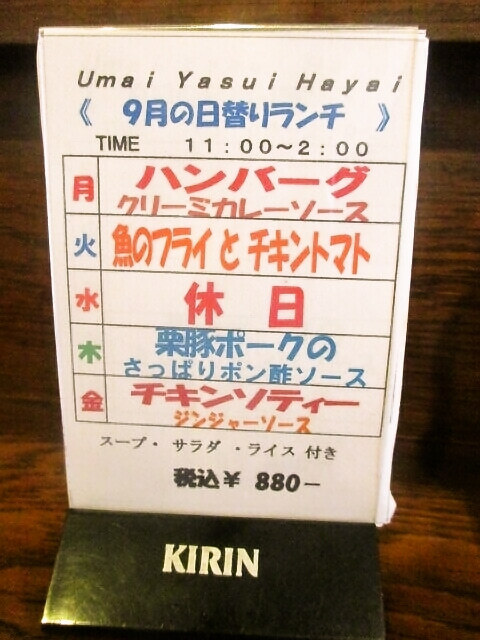 Umai Yasui Hayai
《 9月の日替りランチ 》
TIME 11:00～2:00
月 ハンバーグ
クリーミカレーソース
火 魚のフライ と チキントマト
水 休 日
木 栗豚ポークの
さっぱりポン酢ソース
金 チキンソティー
ジンジャーソース
スープ・ サラダ ・ライス 付き
税込￥ 880－
KIRIN